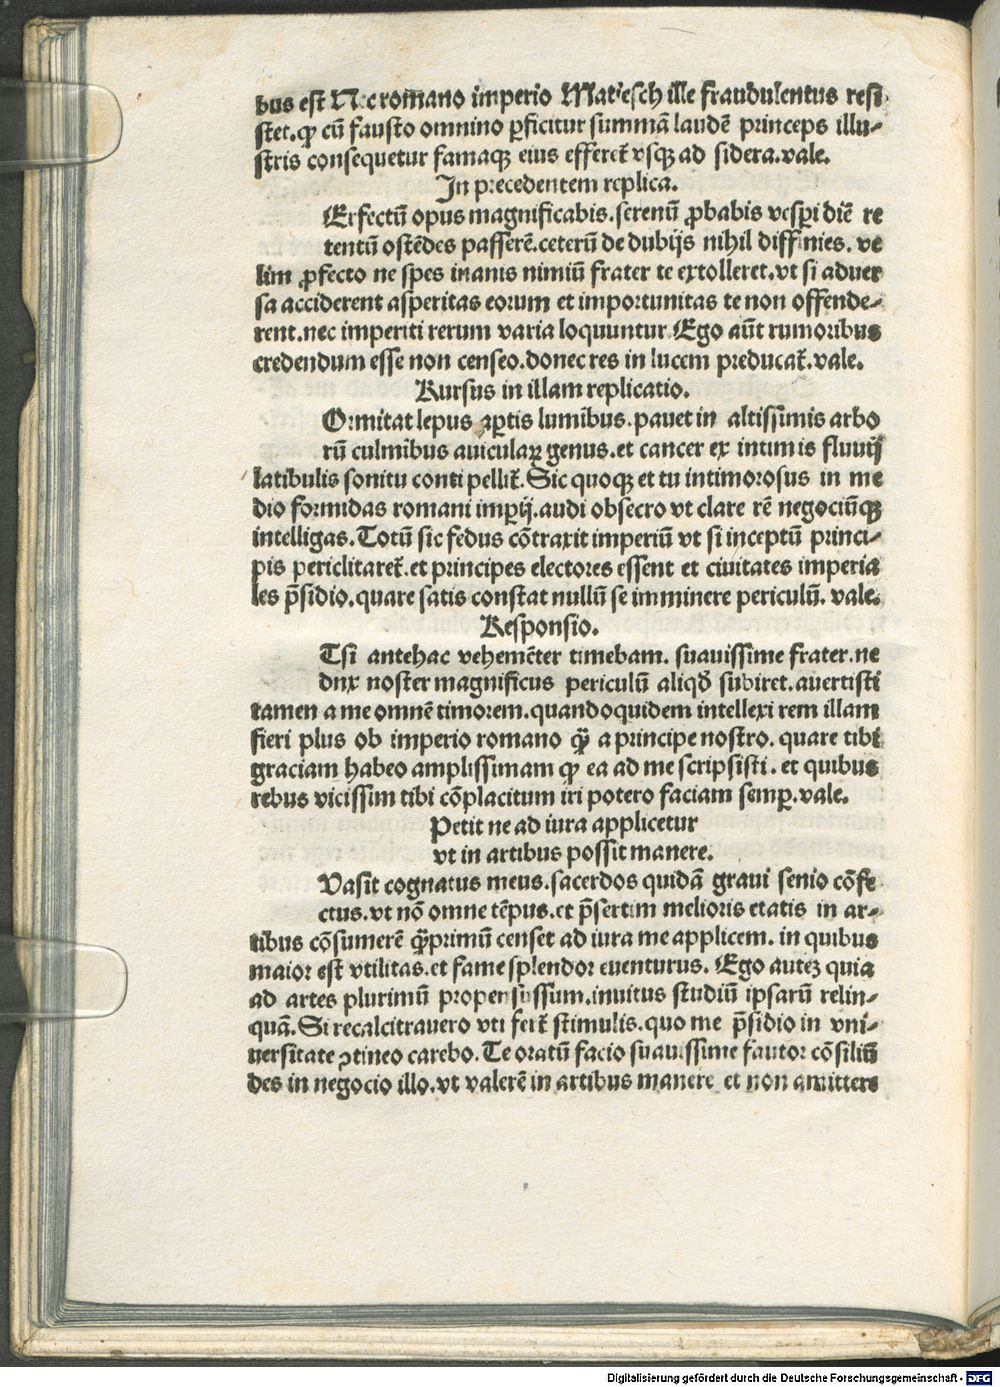 bus est Nec romano imperio Matiesch ille fraudulentus resi
stet.qꝫ cū fausto omnino ꝑficitur summā laudē princeps illu-
stris consequetur famaqꝫ eius efferet̄ vsqꝫ ad sidera.vale.
In precedentem replica.
Erfectū opus magnificabis.serenū ꝓbabis vesꝑi diē re
tentū ostēdes passerē.ceterū de dubijs nihil diffinies. ve
lim ꝓfecto ne spes inanis nimiū frater te extolleret.vt si aduer
sa acciderent asperitas eorum et importunitas te non offende-
rent.nec imperiti rerum varia loquuntur Ego aūt rumoribus
credendum esse non censeo.donec res in lucem preducat̄.vale.
Rursus in illam replicatio.
Ormitat lepus aꝑtis lumibus.pauet in altissimis arbo
rū culmibus auiculaꝝ genus.et cancer ex intimis fluuij
latibulis sonitu conti pellit̄.Sic quoqꝫ et tu intimorosus in me
dio formidas romani imꝑij.audi obsecro vt clare rē negociūqꝫ
intelligas.Totū sic fedus cōtraxit imperiū vt si inceptū princi-
pis periclitaret̄.et principes electores essent et ciuitates imperia
les p̄sidio.quare satis constat nullū se imminere periculū. vale.
Responsio.
Tsi antehac vehemēter timebam. suauissime frater.ne
dnx noster magnificus periculū aliqd̄ subiret.auertisti
tamen a me omnē timorem.quandoquidem intellexi rem illam
fieri plus ob imperio romano qꝫ̄ a principe nostro. quare tibi
graciam habeo amplissimam qꝫ ea ad me scripsisti. et quibus
rebus vicissim tibi cōplacitum iri potero faciam semꝑ.vale.
Petit ne ad iura applicetur
vt in artibus possit manere.
Vasit cognatus meus.sacerdos quidā graui senio cōfe
ctus.vt nō omne tēpus.et p̄sertim melioris etatis in ar-
tibus cōsumerē qꝫ̄primū censet ad iura me applicem. in quibus
maior est vtilitas.et fame splendor euenturus. Ego autez quia
ad artes plurimū propensussum.inuitus studiū ipsarū relin-
quā.Si recalcitrauero vti fert̄ stimulis.quo me p̄sidio in vni-
uersitate ꝯtineo carebo.Te oratū facio suauissime fautor cōsiliū
des in negocio illo.vt valerē in artibus manere et non amittere
Digitalisierung gefördert durch die Deutsche Forschungsgemeinschaft - DFG